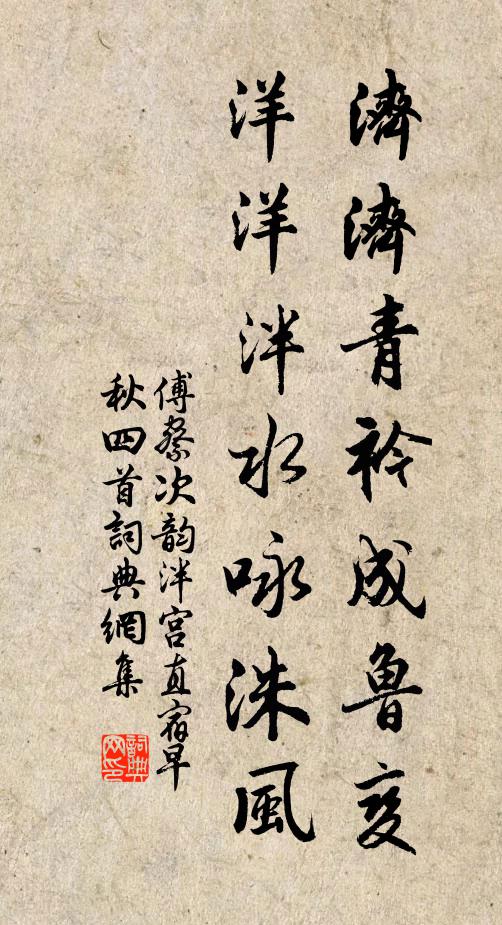 濟濟青衿成魯变
洋洋泮水咏洙風
傅察次韵泮宫直宿早
秋四首詞典網集
詞典
网印